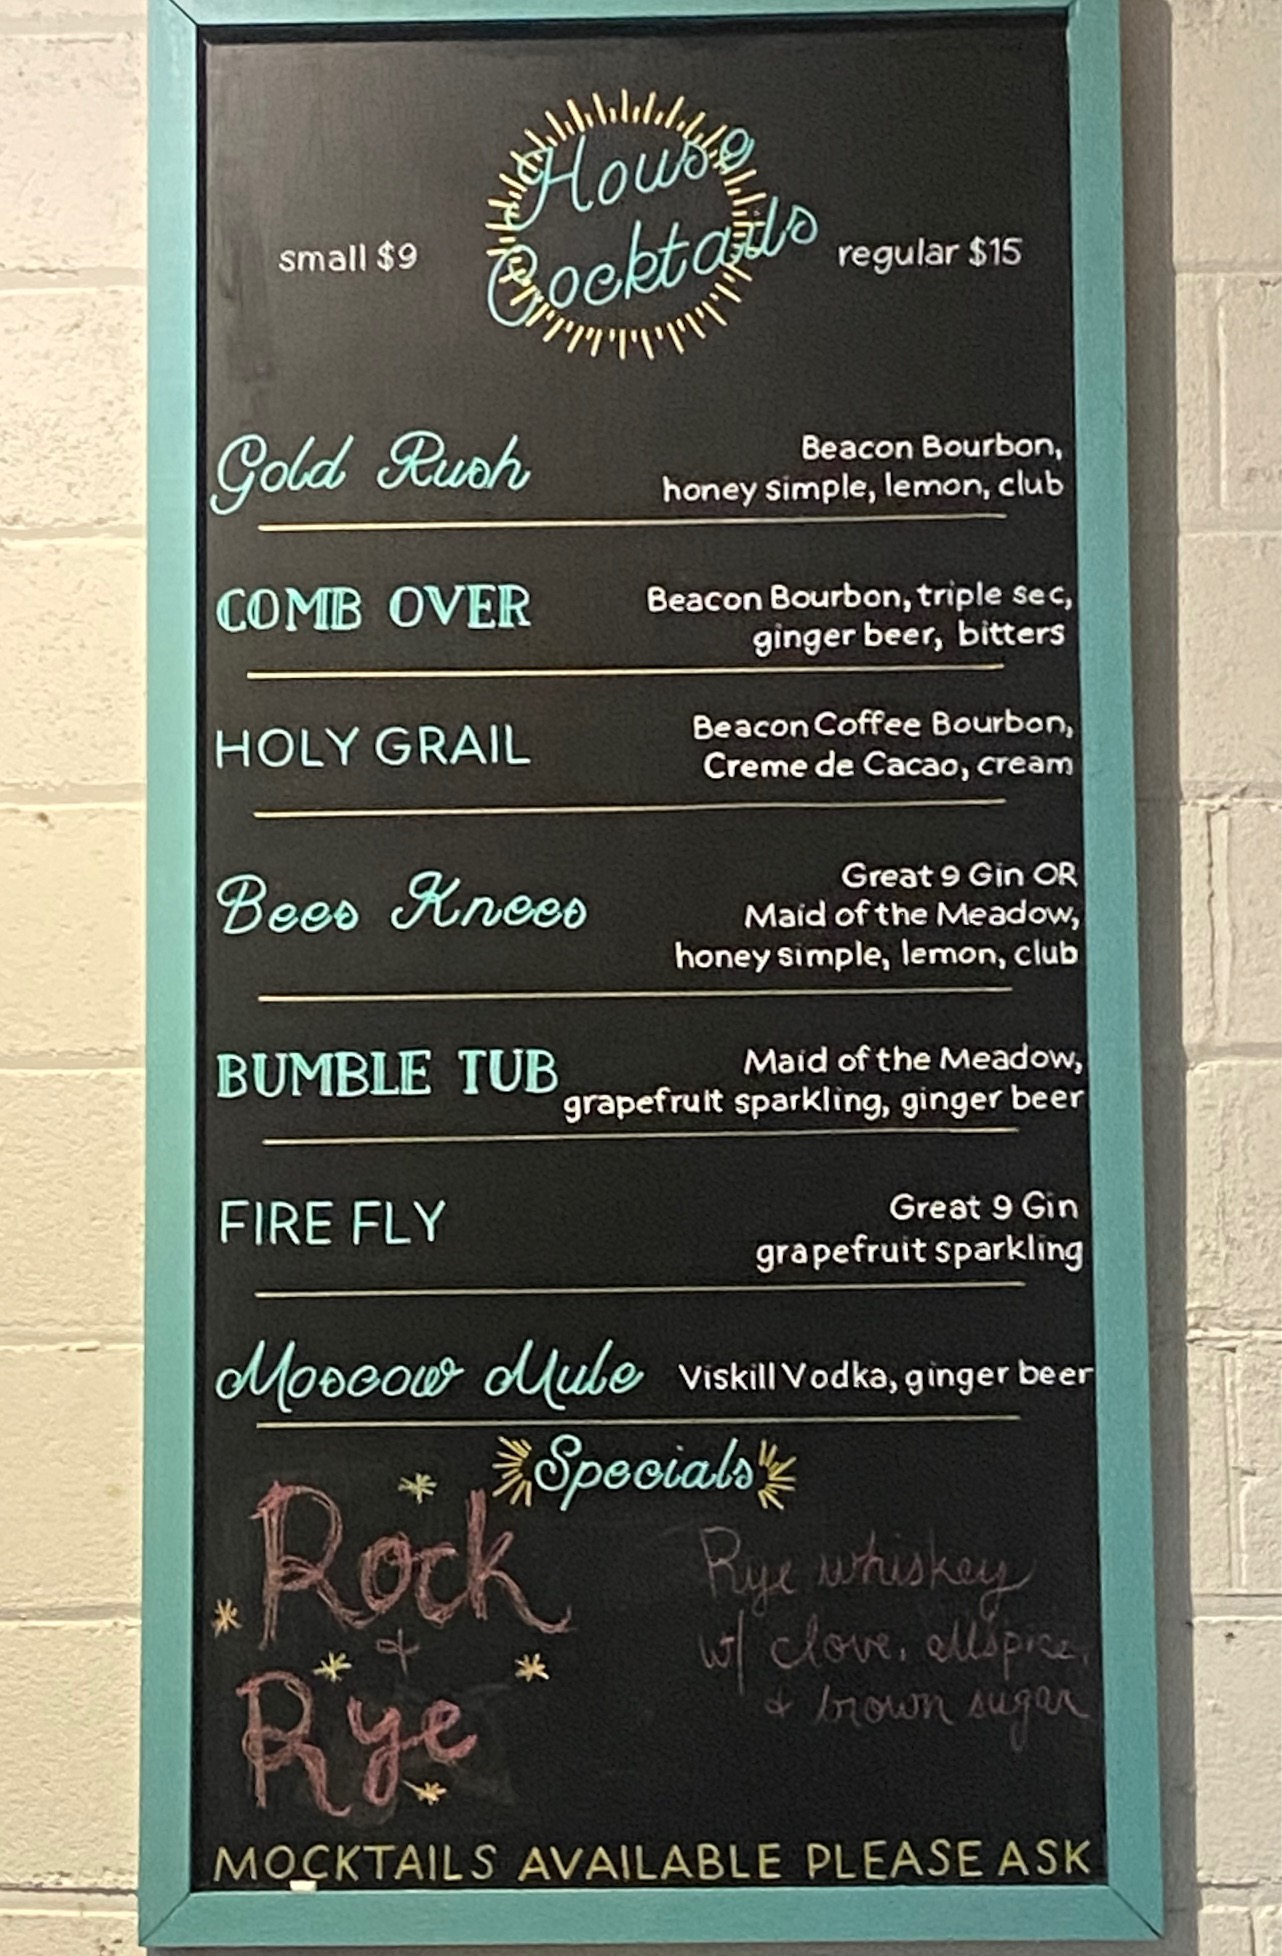 House
Cocktails
small $9
regular $15
Gold Rush
Beacon Bourbon,
honey simple, lemon, club
COMB OVER
Beacon Bourbon, triple sec,
ginger beer, bitters
HOLY GRAIL
Beacon Coffee Bourbon,
Creme de Cacao, cream
Bees Knees
Great 9 Gin OR
Maid of the Meadow,
honey simple, lemon, club
BUMBLE TUB
Maid of the Meadow,
grapefruit sparkling, ginger beer
FIRE FLY
Great 9 Gin
grapefruit sparkling
Moscow Mule
Viskill Vodka, ginger beer
Specials
Rock
+
Rye
Rye whiskey
w/ clove, allspice,
+ brown sugar
MOCKTAILS AVAILABLE PLEASE ASK